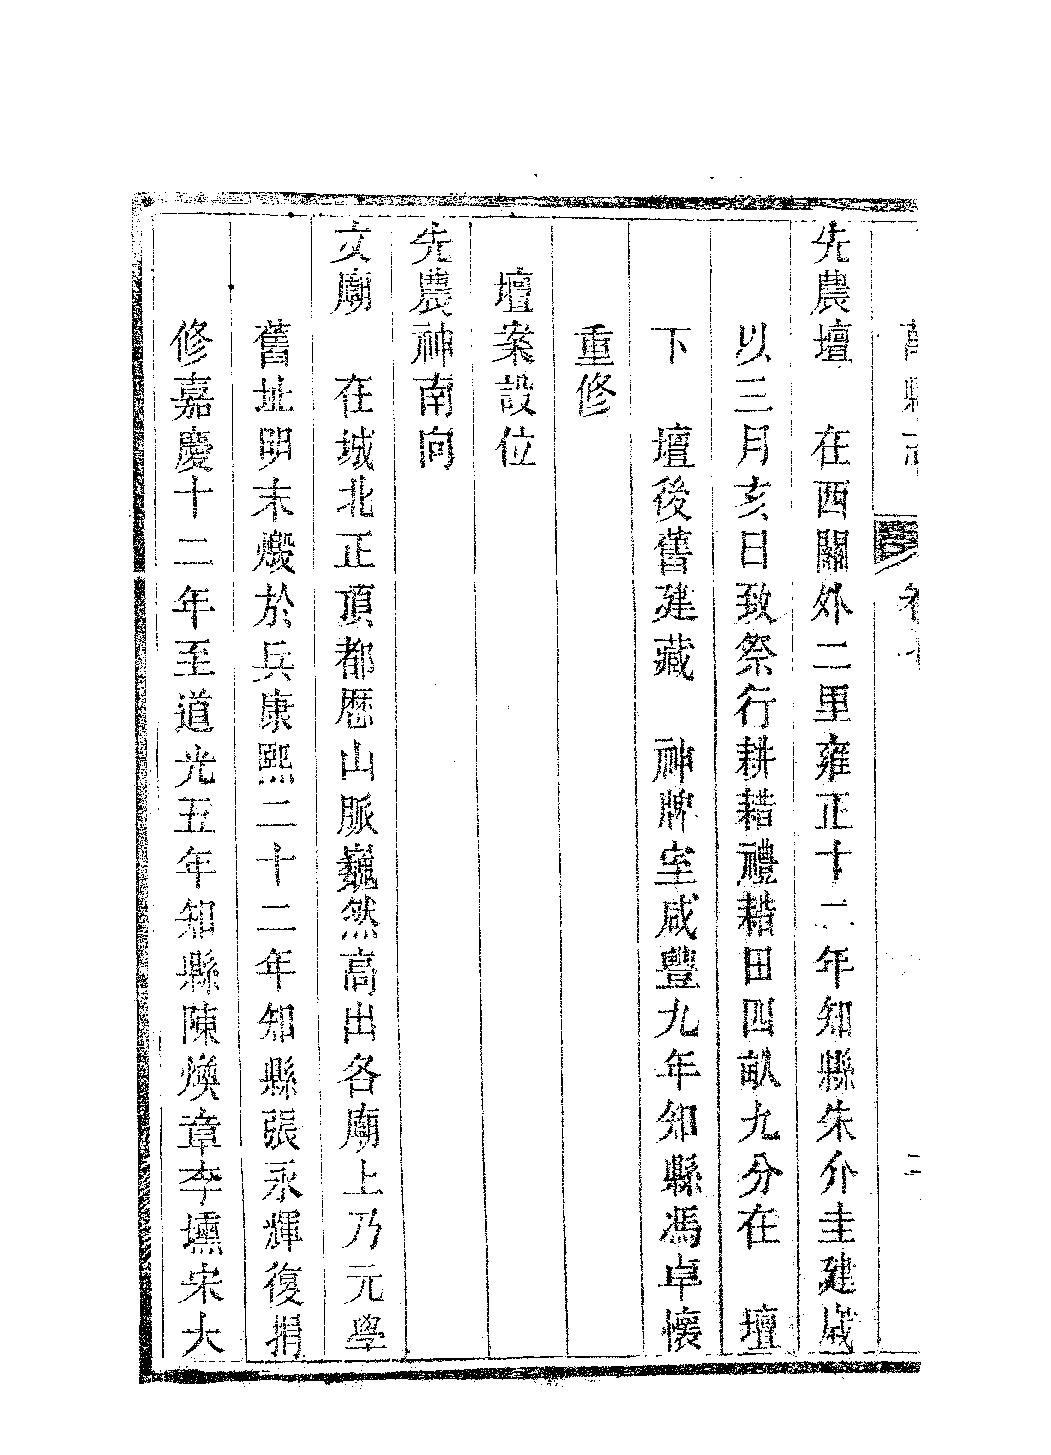 萬縣志 卷七 二
先農壇 在西關外二里雍正十二年知縣朱介圭建歲
以三月亥日致祭行耕耤禮耤田四畝九分在 壇
下 壇後舊建藏 神牌室咸豐九年知縣馮卓懷
重修
壇案設位
先農神南向
文廟 在城北正頂都歴山脈巍然高出各廟上乃元學
舊址明末燬於兵康熙二十二年知縣張永輝復捐
修嘉慶十二年至道光五年知縣陳煥章李壎宋大